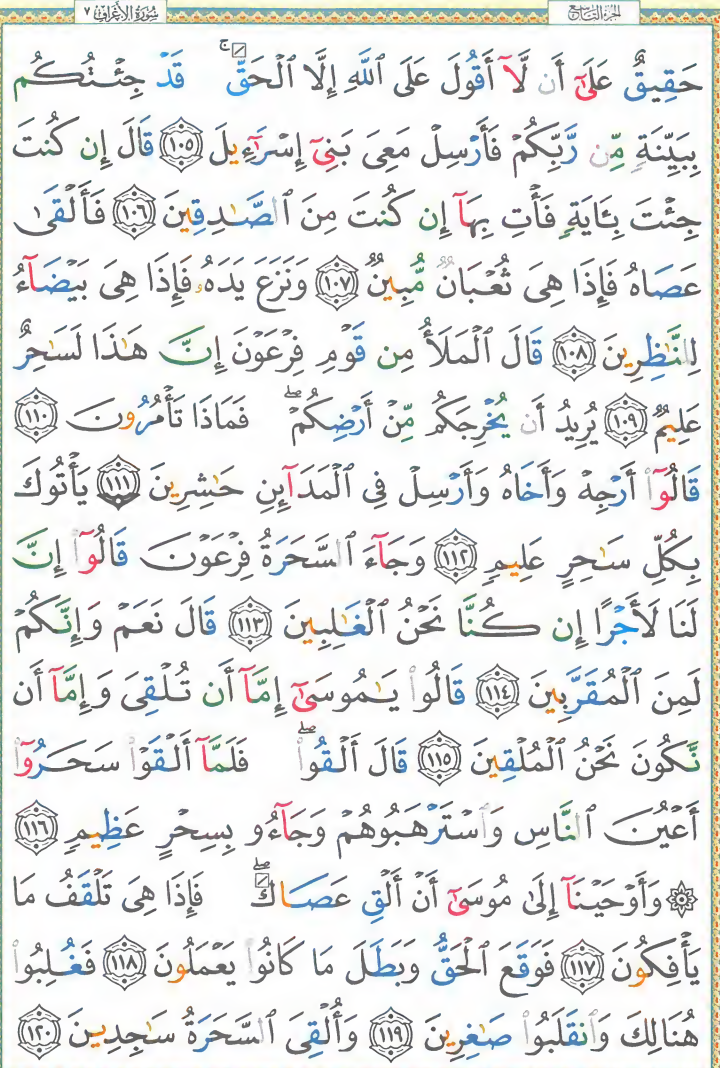 الجزء التاسع سورة الأعراف ٧
حَقِيقٌ عَلَىٰٓ أَن لَّآ أَقُولَ عَلَى ٱللَّهِ إِلَّا ٱلْحَقَّ ۚ قَدْ جِئْتُكُم
بِبَيِّنَةٍ مِّن رَّبِّكُمْ فَأَرْسِلْ مَعِىَ بَنِىٓ إِسْرَٰٓءِيلَ ١٠٥ قَالَ إِن كُنتَ
جِئْتَ بِـَٔايَةٍ فَأْتِ بِهَآ إِن كُنتَ مِنَ ٱلصَّـٰدِقِينَ ١٠٦ فَأَلْقَىٰ
عَصَاهُ فَإِذَا هِىَ ثُعْبَانٌ مُّبِينٌ ١٠٧ وَنَزَعَ يَدَهُۥ فَإِذَا هِىَ بَيْضَآءُ
لِلنَّـٰظِرِينَ ١٠٨ قَالَ ٱلْمَلَأُ مِن قَوْمِ فِرْعَوْنَ إِنَّ هَـٰذَا لَسَـٰحِرٌ
عَلِيمٌ ١٠٩ يُرِيدُ أَن يُخْرِجَكُم مِّنْ أَرْضِكُمْ ۖ فَمَاذَا تَأْمُرُونَ ١١٠
قَالُوٓا۟ أَرْجِهْ وَأَخَاهُ وَأَرْسِلْ فِى ٱلْمَدَآئِنِ حَـٰشِرِينَ ١١١ يَأْتُوكَ
بِكُلِّ سَـٰحِرٍ عَلِيمٍ ١١٢ وَجَآءَ ٱلسَّحَرَةُ فِرْعَوْنَ قَالُوٓا۟ إِنَّ
لَنَا لَأَجْرًا إِن كُنَّا نَحْنُ ٱلْغَـٰلِبِينَ ١١٣ قَالَ نَعَمْ وَإِنَّكُمْ
لَمِنَ ٱلْمُقَرَّبِينَ ١١٤ قَالُوا۟ يَـٰمُوسَىٰٓ إِمَّآ أَن تُلْقِىَ وَإِمَّآ أَن
نَّكُونَ نَحْنُ ٱلْمُلْقِينَ ١١٥ قَالَ أَلْقُوا۟ ۖ فَلَمَّآ أَلْقَوْا۟ سَحَرُوٓا۟
أَعْيُنَ ٱلنَّاسِ وَٱسْتَرْهَبُوهُمْ وَجَآءُو بِسِحْرٍ عَظِيمٍ ١١٦
۞ وَأَوْحَيْنَآ إِلَىٰ مُوسَىٰٓ أَنْ أَلْقِ عَصَاكَ ۖ فَإِذَا هِىَ تَلْقَفُ مَا
يَأْفِكُونَ ١١٧ فَوَقَعَ ٱلْحَقُّ وَبَطَلَ مَا كَانُوا۟ يَعْمَلُونَ ١١٨ فَغُلِبُوا۟
هُنَالِكَ وَٱنقَلَبُوا۟ صَـٰغِرِينَ ١١٩ وَأُلْقِىَ ٱلسَّحَرَةُ سَـٰجِدِينَ ١٢٠